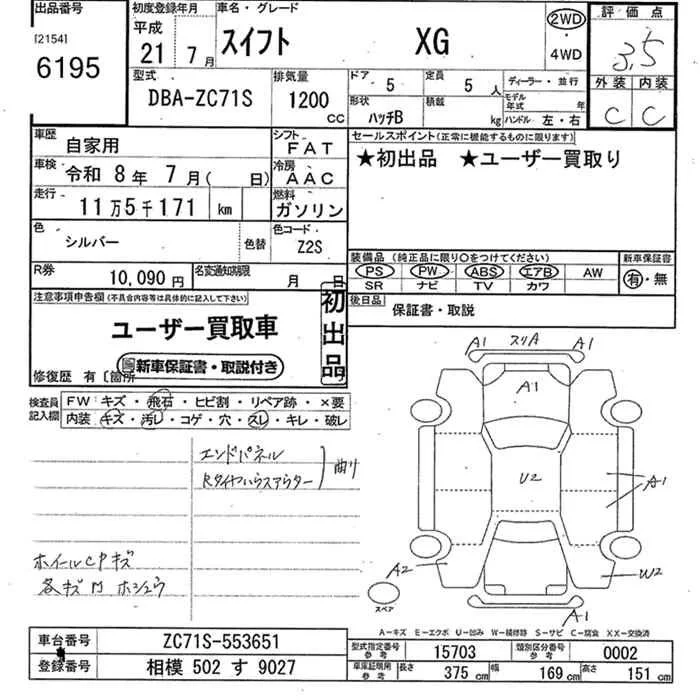 出品番号
[2154]
6195
初度登録年月
平成
21 7 月
車名・グレード
スイフト XG
2WD
・
4WD
評価点
3.5
外装 内装
C C
型式
DBA-ZC71S
排気量
1200
CC
ドア 5
定員 5 人
ディーラー・並行
形状
ハッチB
積載 kg
モデル年式 年
ハンドル 左・右
車歴
自家用
シフト
FAT
車検
令和 8 年 7 月( 日)
冷房
AAC
走行
11 万 5 千 171 km
燃料
ガソリン
色
シルバー
色替
色コード
Z2S
セールスポイント(正常に機能するものに限ります)
★初出品 ★ユーザー買取り
R券
10,090 円
名変通知期限
月 日
装備品(純正品に限り〇をつけてください)
PS PW ABS エアB AW
SR ナビ TV カワ
新車保証書
有・無
注意事項申告欄(不具合内容等は具体的に記入して下さい)
初出品
ユーザー買取車
新車保証書・取説付き
修復歴 有〔箇所
後日品
保証書・取説
検査員記入欄
FW キズ・飛石・ヒビ割・リペア跡・×要
内装 キズ・汚レ・コゲ・穴・スレ・キレ・破レ
エンドパネル
Rタイヤハウスアウター
曲り
ホイールCPキズ
各キズ凹 ホシュウ
A1 スリA A1
A1
U2
A1
A2
W2
A1
スペア
A-キズ E-エクボ U-凹み W-補修跡 S-サビ C-腐食 XX-交換済
車台番号
ZC71S-553651
型式指定番号
参考
15703
類別区分番号
参考
0002
登録番号
相模 502 す 9027
車庫証明用
参考
長さ 375 cm
幅 169 cm
高さ 151 cm